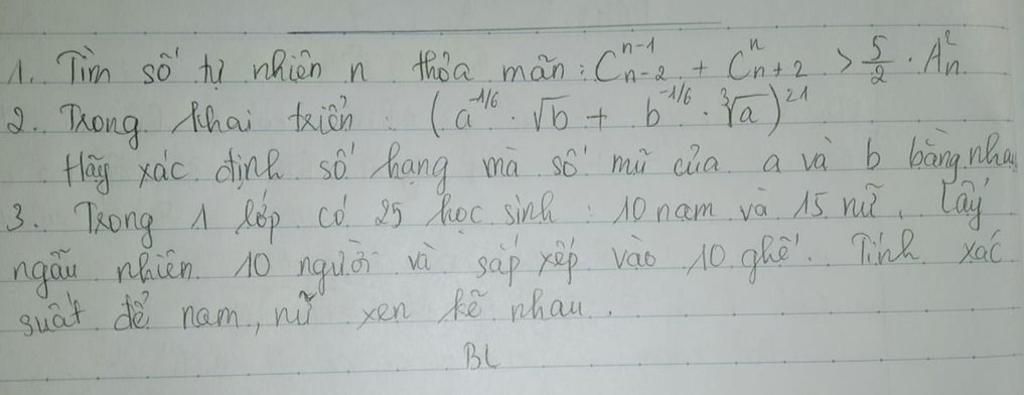 1. Tìm số tự nhiên n thỏa mãn: C_{n-2}^{n-1} + C_{n+2}^{n} > 5/2 · A_n^2
2. Trong khai triển : (a^{-1/6} · √b + b^{-1/6} · ∛a)^{21}
Hãy xác định số hạng mà số mũ của a và b bằng nha
3. Trong 1 lớp có 25 học sinh : 10 nam và 15 nữ. Lấy
ngẫu nhiên 10 người và sắp xếp vào 10 ghế. Tính xác
suất để nam, nữ xen kẽ nhau.
BL